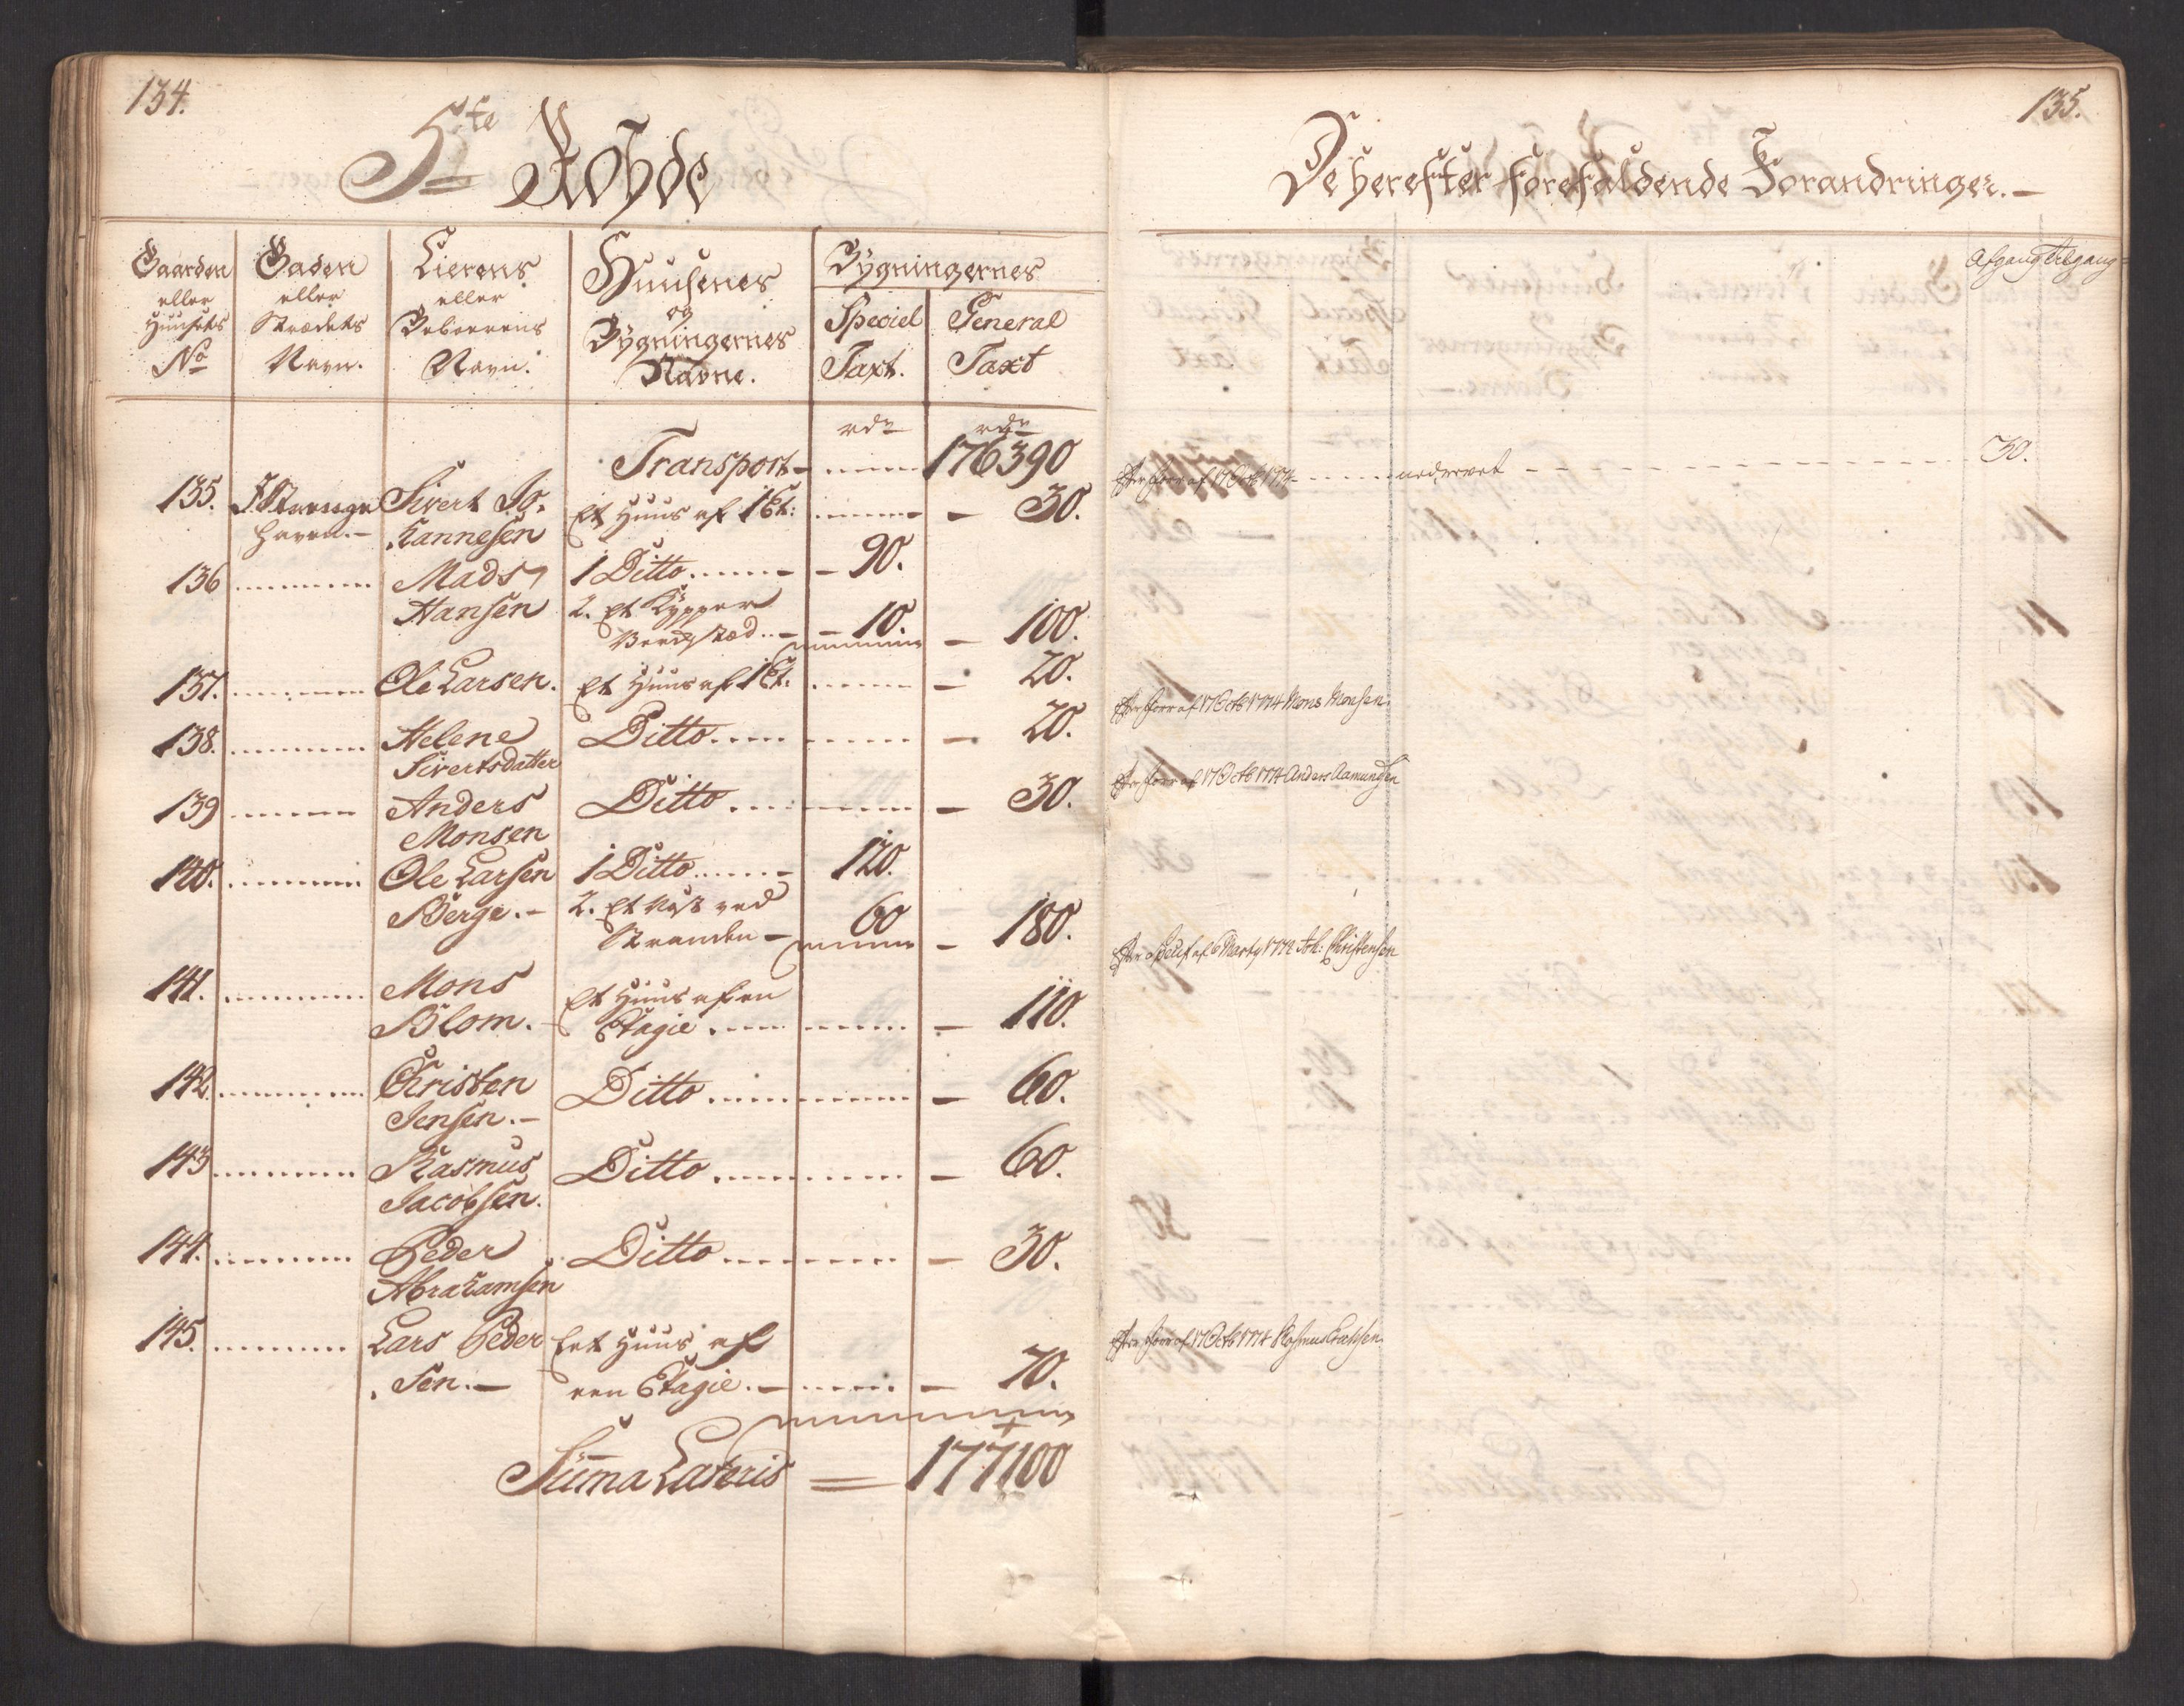 134.
5te Rohde
Gaarden
eller
Huusets
No
Gaden
eller
Strædets
Navn.
Eierens
eller
Beboerens
Navn.
Huusenes
og
Bygningernes
Navne.
Bygningernes
Speciel
Taxt.
General
Taxt
rdr
rdr
Transport 176390
135. I Strange Sivert Jo- Et Huus af 1 Et: 30.
havn. hannesen
136 Mads 1 Ditto 90.
Hansen 2. Et Kypper
Værksted 10. 100.
137. Ole Larsen. Et Huus af 1 Et. 20.
138. Helene Ditto 20.
Sivertsdatter
139 Anders Ditto 30.
Monsen
140. Ole Larsen 1 Ditto 120.
Berge. 2. Et Nøst ved
Stranden 60 180.
141. Mons Et Huus af en
Blom. Etagie 110.
142. Christen Ditto 60.
Jensen.
143 Rasmus Ditto 60.
Jacobsen.
144. Peder Ditto 30.
Abrahamsen
145. Lars Peder Eet Huus af
sen. een Etagie. 70.
Suma Lateris 177100
135.
De herefter forefaldende Forandringer.
Afgang Tilgang
Forr af 17 Octb 1774 nedrevet 30.
Forr af 17 Octb 1774 Mons Monsen
Forr af 17 Octb 1774 Anders Aamundsen
af 6 Marty 1772 Joh: Christensen
Forr af 17 Octb 1774 Rasmus